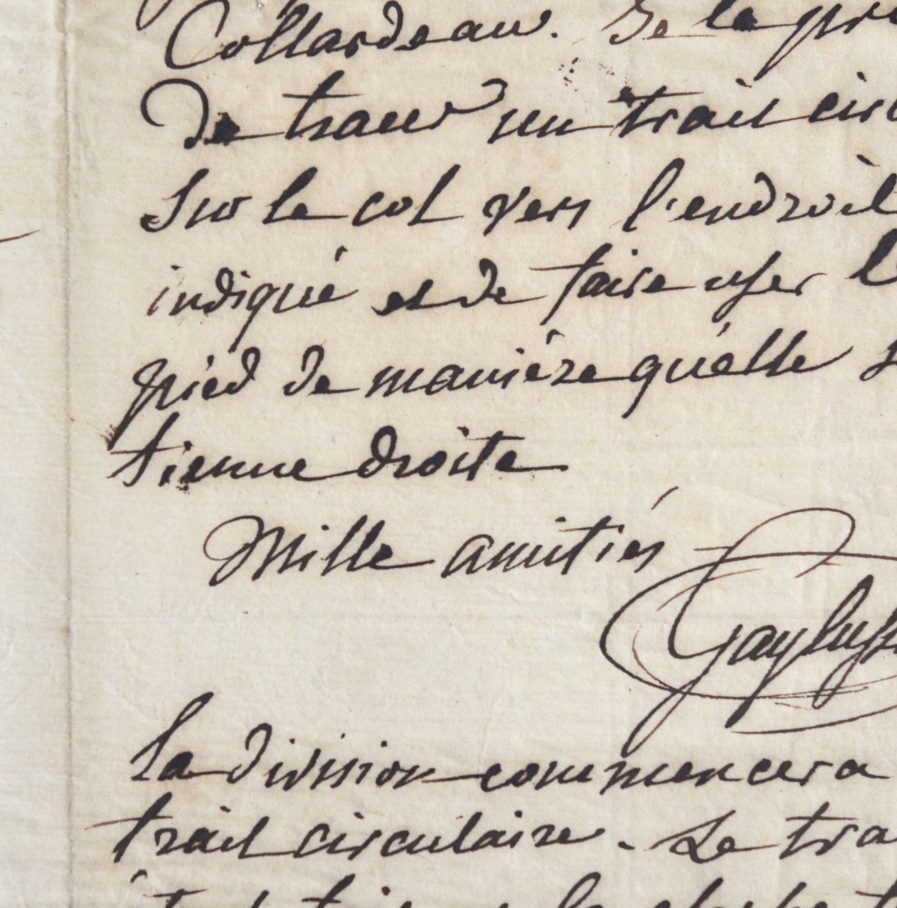 Collardeau. Je le pri
de tracer un trait circ
Sur le col vers l'endroit
indiqué et de faire user l
pied de manière qu'elle s
tienne droite
Mille amitiés
Gay Luss
la division commencera
trait circulaire. Le tra